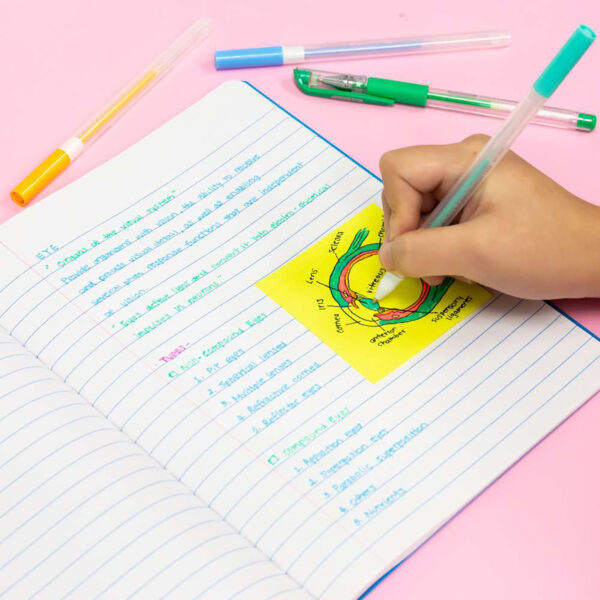 EYE
" Organs of the visual system "
Provide organisms with vision, the ability to receive
and process visual detail, as well as enabling
several photo response functions that are independent
on vision.
" Eyes detect light and convert it into electro-chemical
impulses in neurons "
TYPES-
Non-Compound Eyes
1. Pit eyes
2. Spherical lensed
3. Multiple lenses
4. Refractive cornea
5. Reflector eyes
Compound Eyes
1. Apposition eyes
2. Superposition eyes
3. Parabolic superposition
4. Others
5. Nutrients
Sclera
Lens
Iris
Cornea
anterior
chamber
Vitreous
suspensory
ligaments